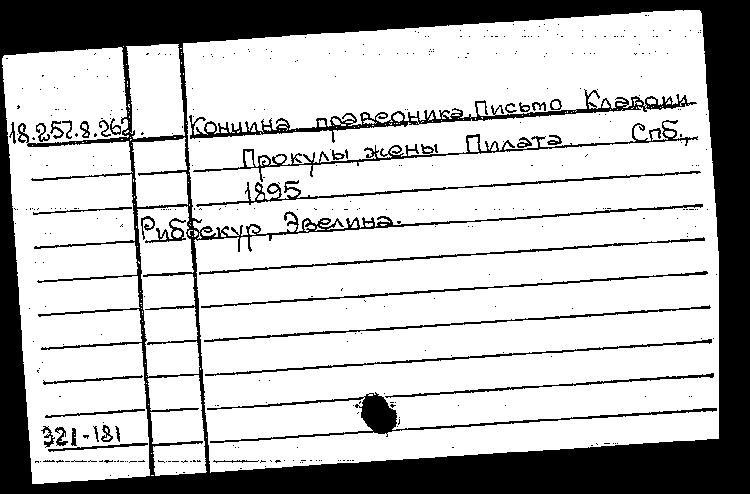 18.257.8.262. Кончина праведника. Письмо Клавдии
Прокулы, жены Пилата Спб.,
1895.
Риббекур, Эвелина.
321-181